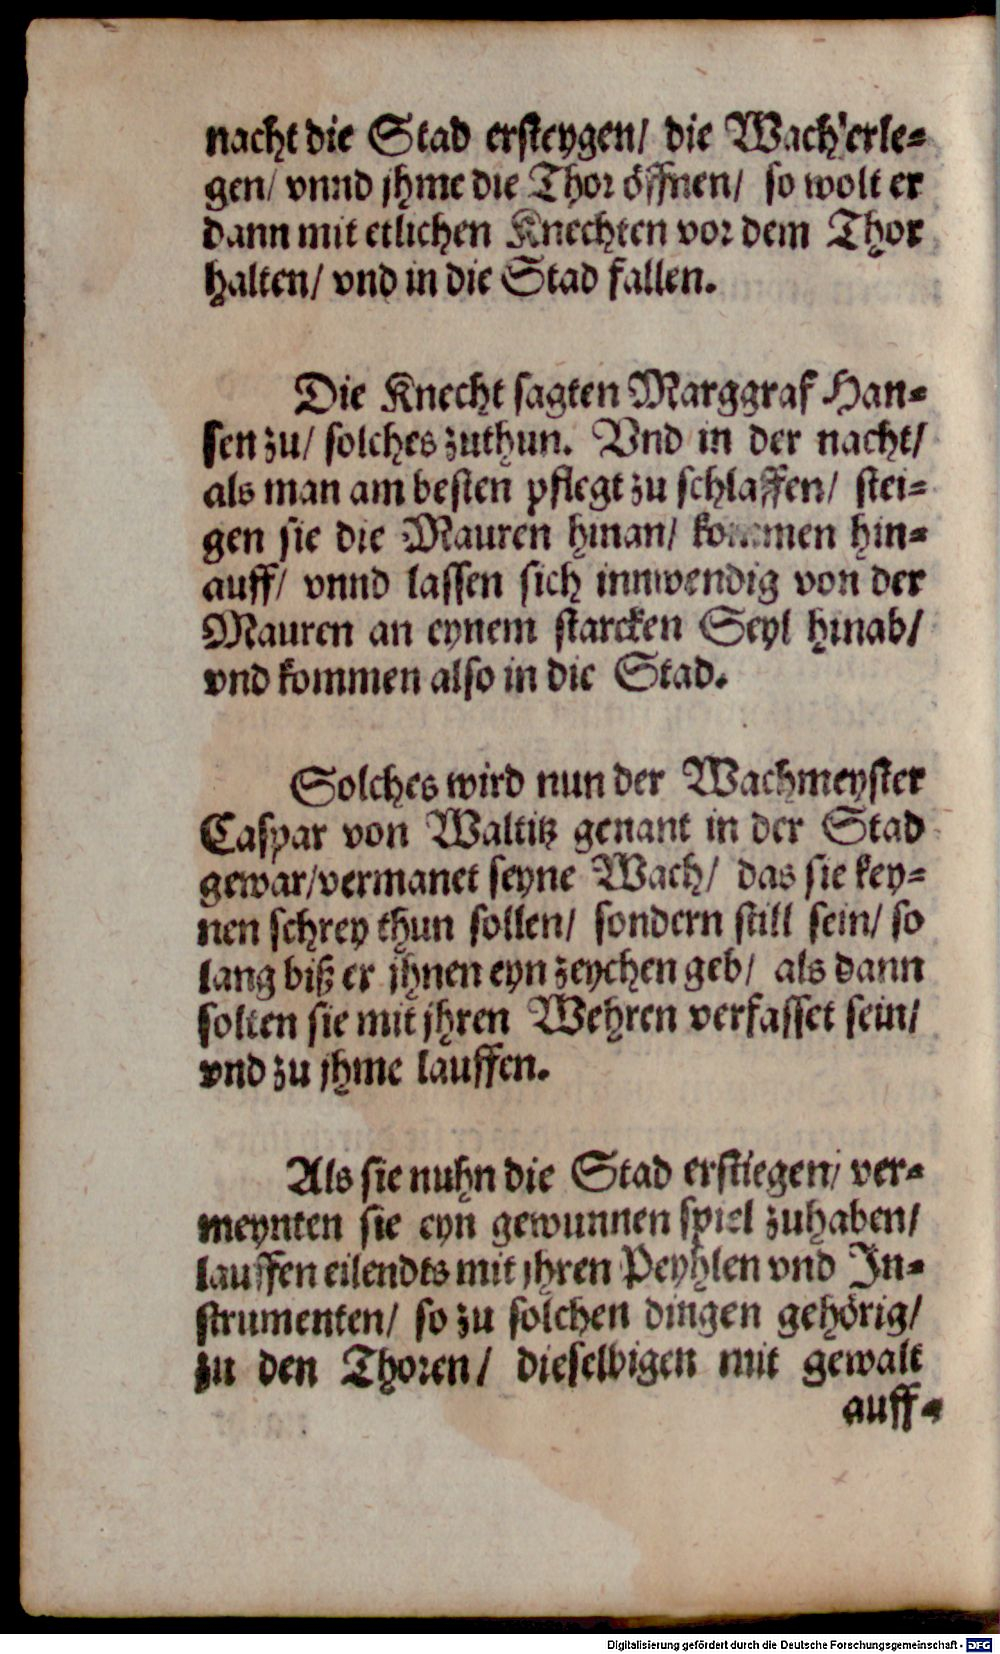 nacht die Stad ersteygen/ die Wach erle-
gen/ vnnd jhme die Thor öffnen/ so wolt er
dann mit etlichen Knechten vor dem Thor
halten/ vnd in die Stad fallen.
Die Knecht sagten Marggraf Han-
sen zu/ solches zuthun. Vnd in der nacht/
als man am besten pflegt zu schlaffen/ stei-
gen sie die Mauren hinan/ kommen hin-
auff/ vnnd lassen sich innwendig von der
Mauren an eynem starcken Seyl hinab/
vnd kommen also in die Stad.
Solches wird nun der Wachmeyster
Caspar von Waltitz genant in der Stad
gewar/ vermanet seyne Wach/ das sie key-
nen schrey thun sollen/ sondern still sein/ so
lang biß er jhnen eyn zeychen geb/ als dann
solten sie mit jhren Wehren verfasset sein/
vnd zu jhme lauffen.
Als sie nuhn die Stad erstiegen/ ver-
meynten sie eyn gewunnen spiel zuhaben/
lauffen eilendts mit jhren Peyhlen vnd In-
strumenten/ so zu solchen dingen gehörig/
zu den Thoren/ dieselbigen mit gewalt
auff-
Digitalisierung gefördert durch die Deutsche Forschungsgemeinschaft - DFG